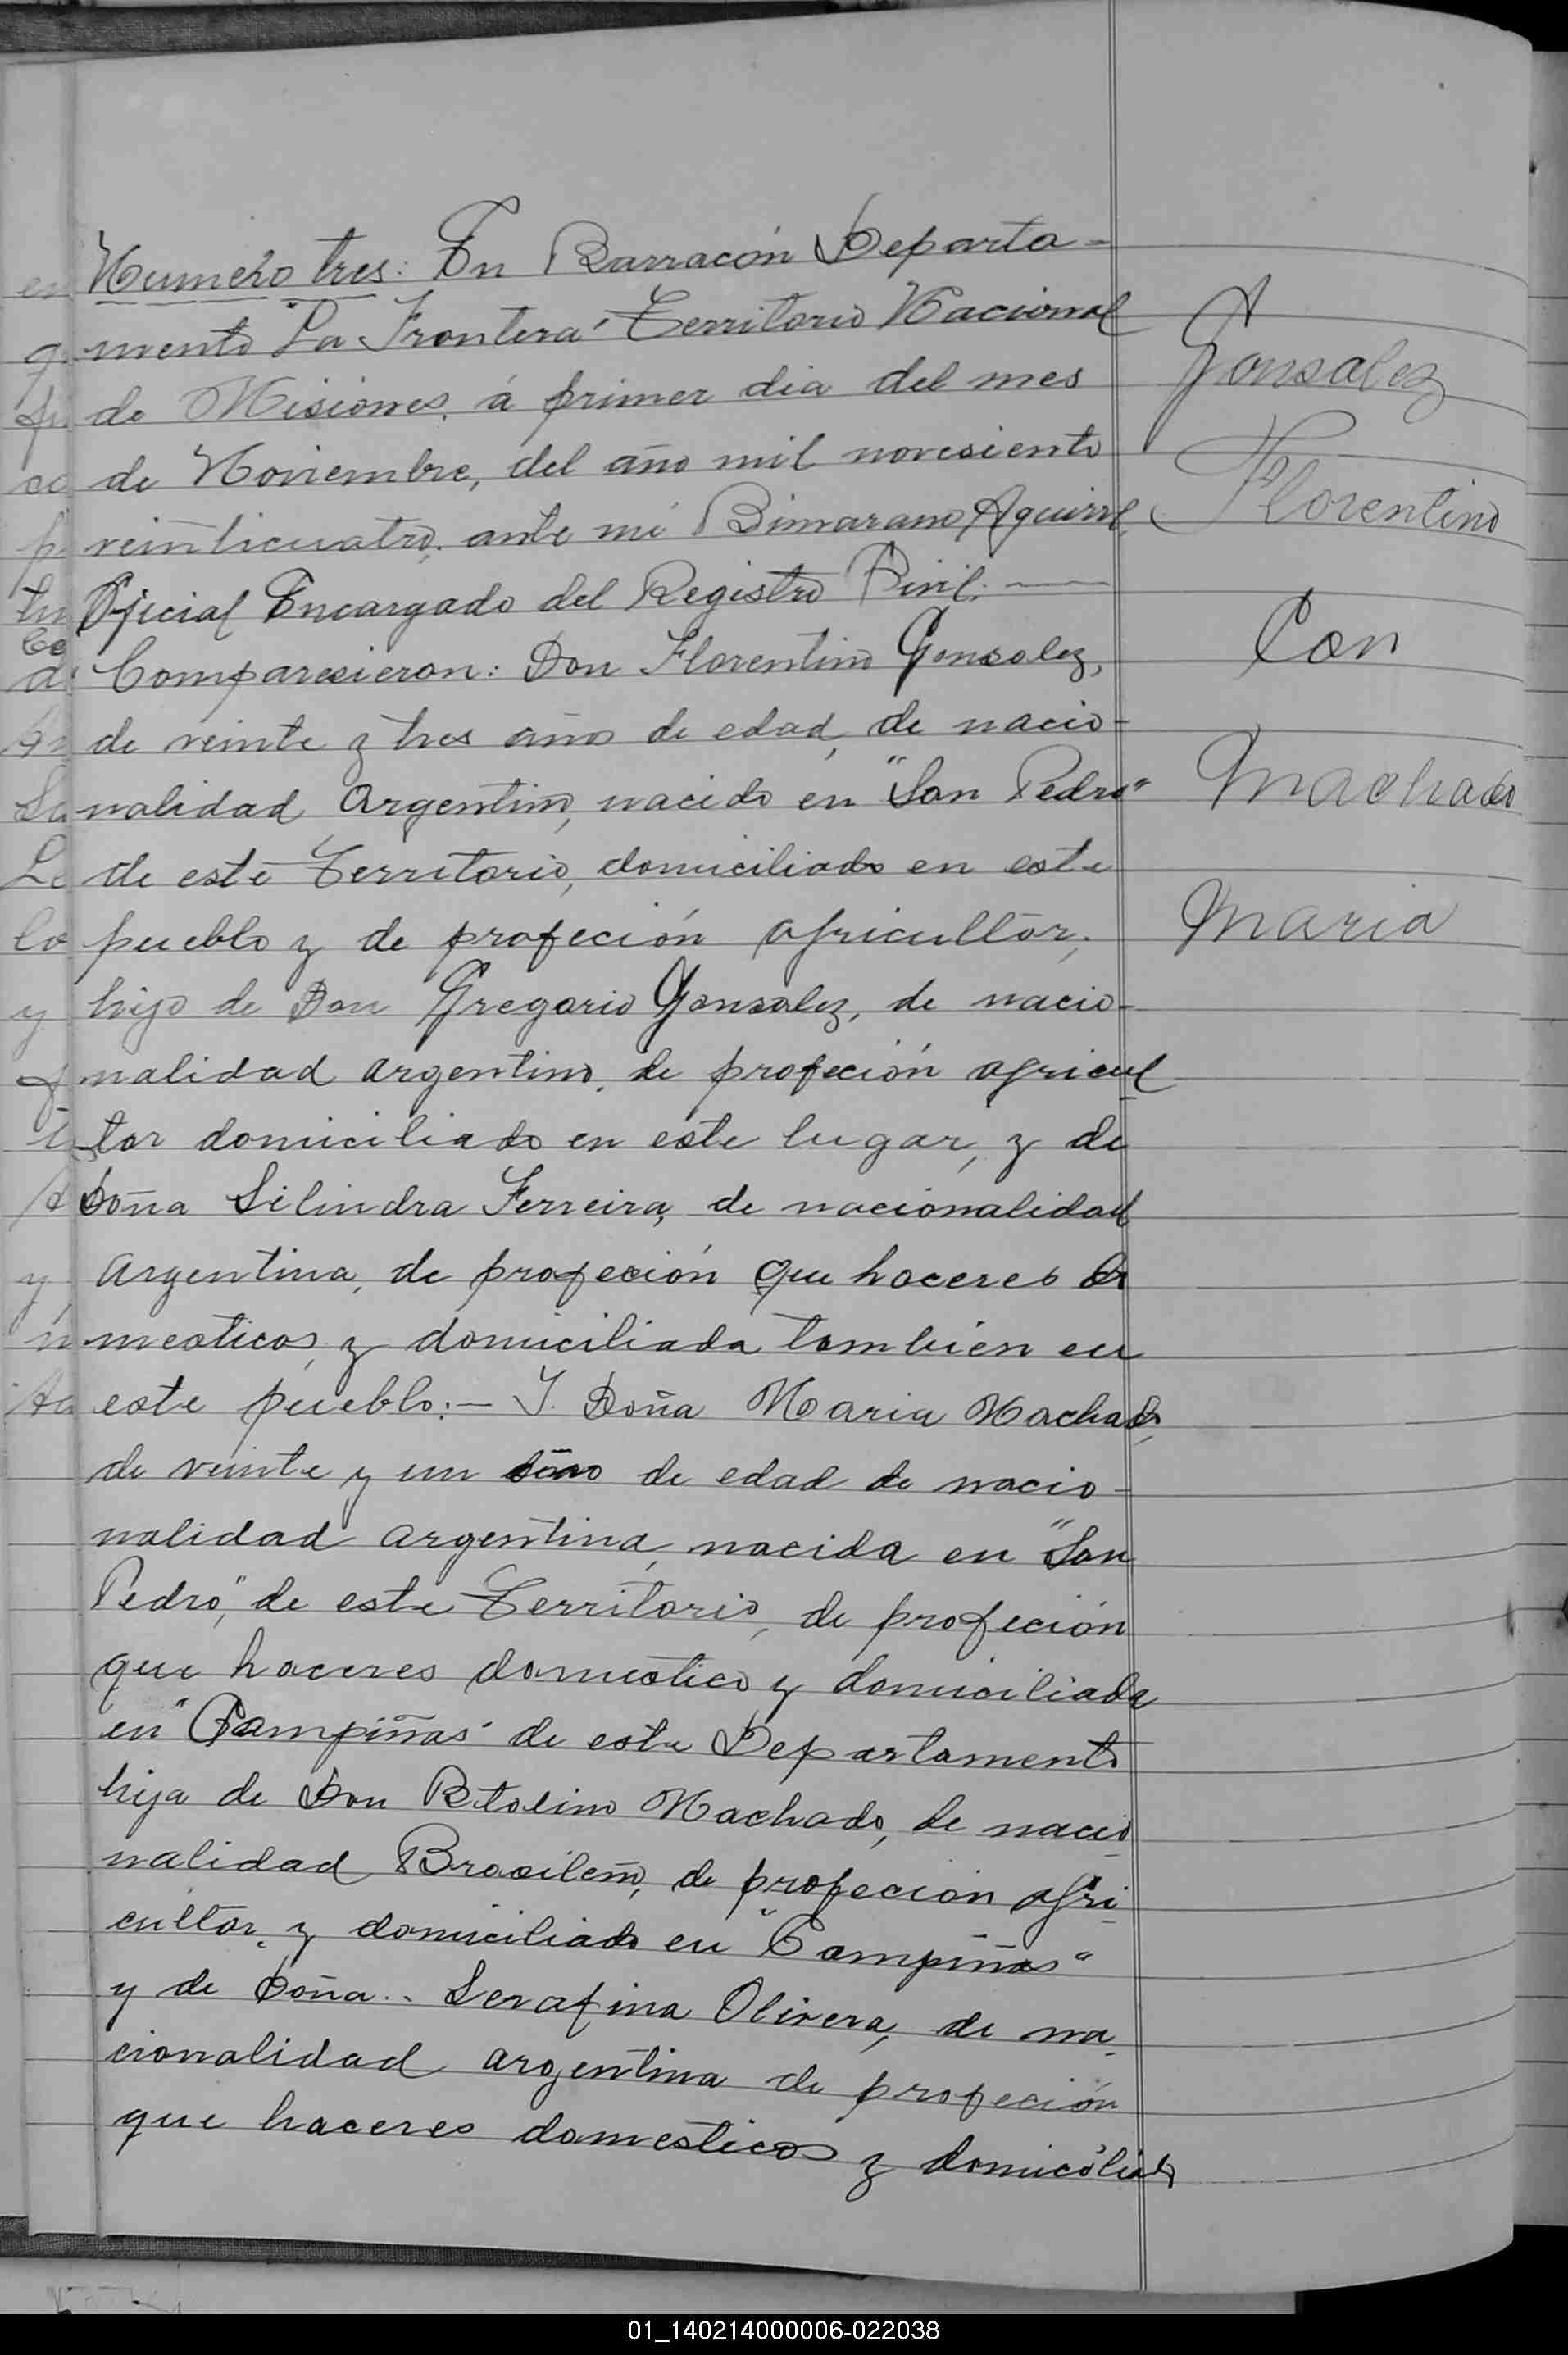 Numero tres: En Barracón Departa-
mento "La Frontera" Territorio Nacional
de Misiones, á primer dia del mes
de Noviembre, del año mil novesiento
veinticuatro, ante mi Bimarano Aguirre
Oficial Encargado del Registro Civil:
Comparesieron: Don Florentino Gonsalez,
de veinte y tres año de edad, de nacio-
nalidad Argentino, nacido en "San Pedro"
de este Territorio, domiciliado en este
pueblo y de profeción agricultor,
hijo de Don Gregorio Gonsalez, de nacio-
nalidad argentino, de profeción agricul
tor domiciliado en este lugar, y de
Doña Silindra Ferreira, de nacionalidad
Argentina, de profeción que haceres do
mesticos, y domiciliada tambien en
este pueblo:- Y. Doña Maria Machado,
de veinte y un año de edad de nacio-
nalidad argentina, nacida en "San
Pedro", de este Territorio, de profeción
que haceres domestico y domiciliada
en "Campiñas" de este Departamento
hija de Don Machado, de nacio
nalidad Brasileño, de profecion agri
cultor, y domiciliado en "Campiñas"
y de Doña.. Serafina Olivera, de na
cionalidad argentina de profeción
que haceres domesticos y domicilia
Gonsalez
Florentino
Con
Machado
Maria
01_140214000006-022038